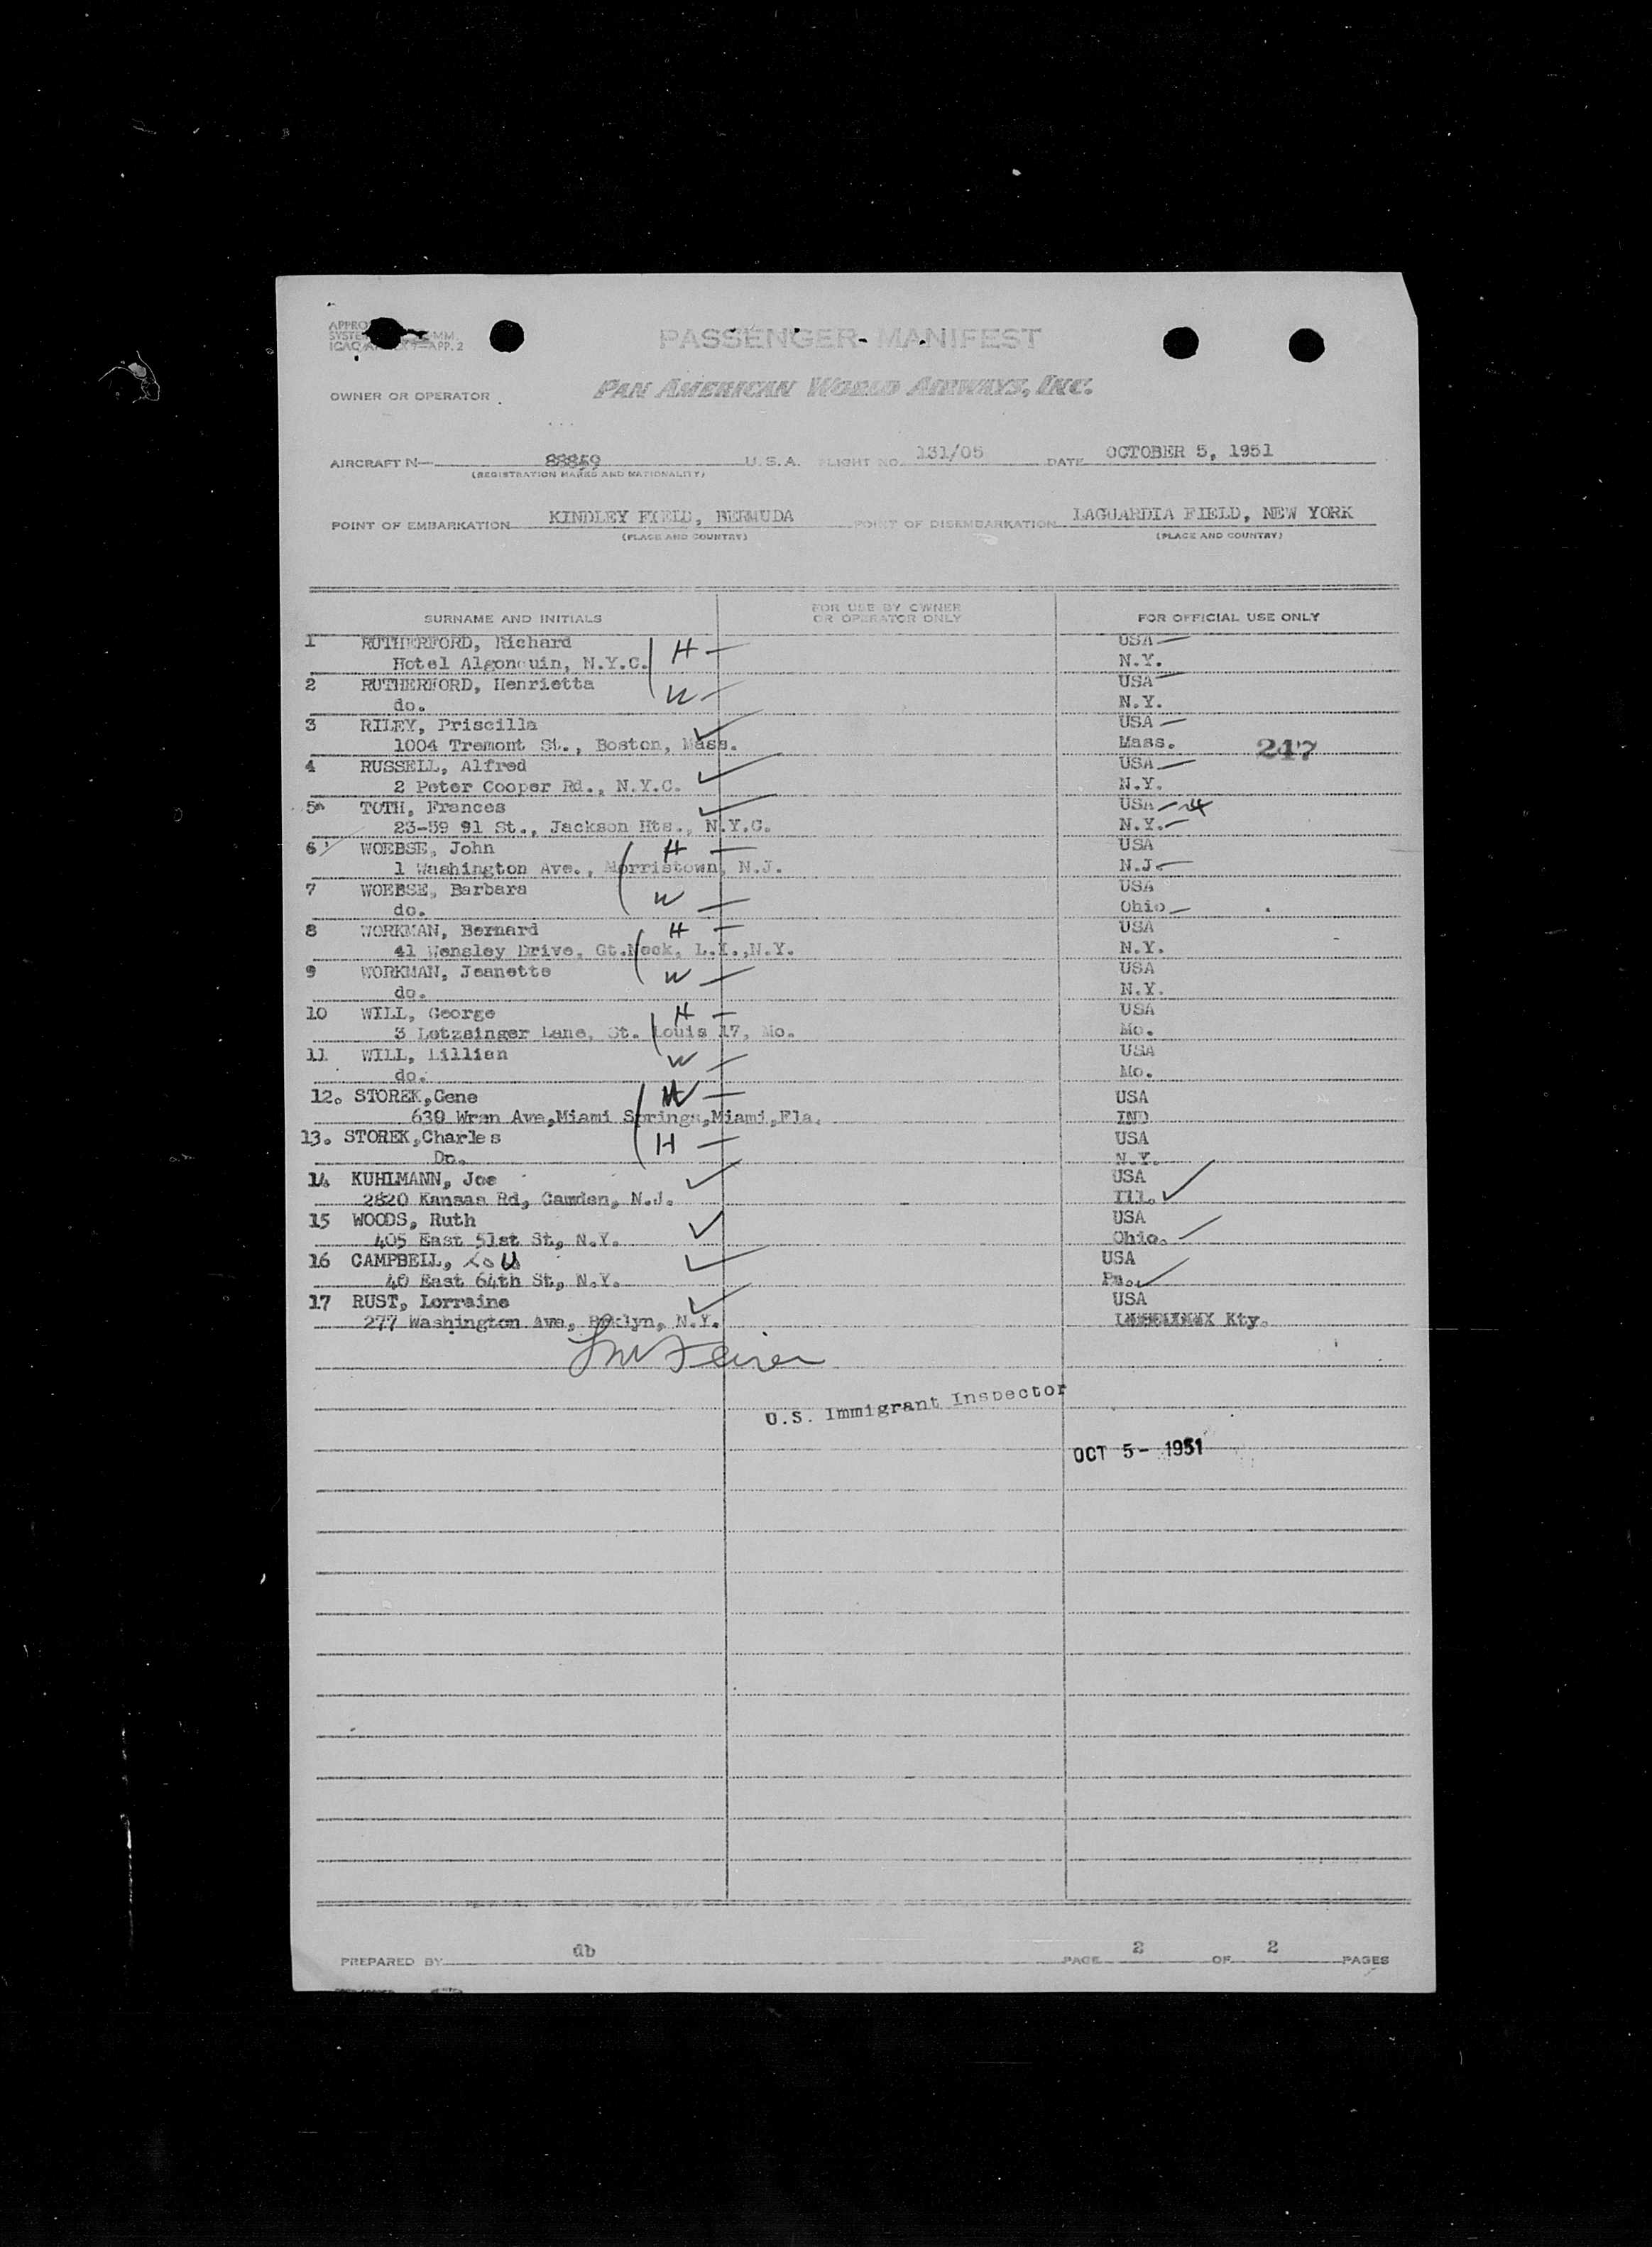 PASSENGER MANIFEST
ICAO APP. 2
OWNER OR OPERATOR
PAN AMERICAN WORLD AIRWAYS, INC.
AIRCRAFT N— 88859 U.S.A. FLIGHT NO. 131/05 DATE OCTOBER 5, 1951
(REGISTRATION MARKS AND NATIONALITY)
POINT OF EMBARKATION KINDLEY FIELD, BERMUDA POINT OF DISEMBARKATION LAGUARDIA FIELD, NEW YORK
(PLACE AND COUNTRY) (PLACE AND COUNTRY)
SURNAME AND INITIALS FOR USE BY OWNER OR OPERATOR ONLY FOR OFFICIAL USE ONLY
1 RUTHERFORD, Richard H USA
Hotel Algonquin, N.Y.C. N.Y.
2 RUTHERFORD, Henrietta W USA
do. N.Y.
3 RILEY, Priscilla USA
1004 Tremont St., Boston, Mass. Mass. 247
4 RUSSELL, Alfred USA
2 Peter Cooper Rd., N.Y.C. N.Y.
5 TOTH, Frances USA
23-59 91 St., Jackson Hts., N.Y.C. N.Y.
6 WOEBSE, John H USA
1 Washington Ave., Morristown, N.J. N.J.
7 WOEBSE, Barbara W USA
do. Ohio
8 WORKMAN, Bernard H USA
41 Wensley Drive, Gt.Neck, L.I.,N.Y. N.Y.
9 WORKMAN, Jeanette W USA
do. N.Y.
10 WILL, George H USA
3 Letzsinger Lane, St. Louis 17, Mo. Mo.
11 WILL, Lillian W USA
do. Mo.
12. STOREK,Gene W USA
630 Wren Ave,Miami Springs,Miami,Fla. IND
13. STOREK,Charles H USA
Do. N.Y.
14 KUHLMANN, Joe USA
2820 Kansas Rd, Camden, N.J. Ill.
15 WOODS, Ruth USA
405 East 51st St, N.Y. Ohio.
16 CAMPBELL, Lou USA
40 East 64th St, N.Y. Pa.
17 RUST, Lorraine USA
277 Washington Ave, Bklyn, N.Y. Kty.
U.S. Immigrant Inspector
OCT 5- 1951
PREPARED BY db PAGE 2 OF 2 PAGES